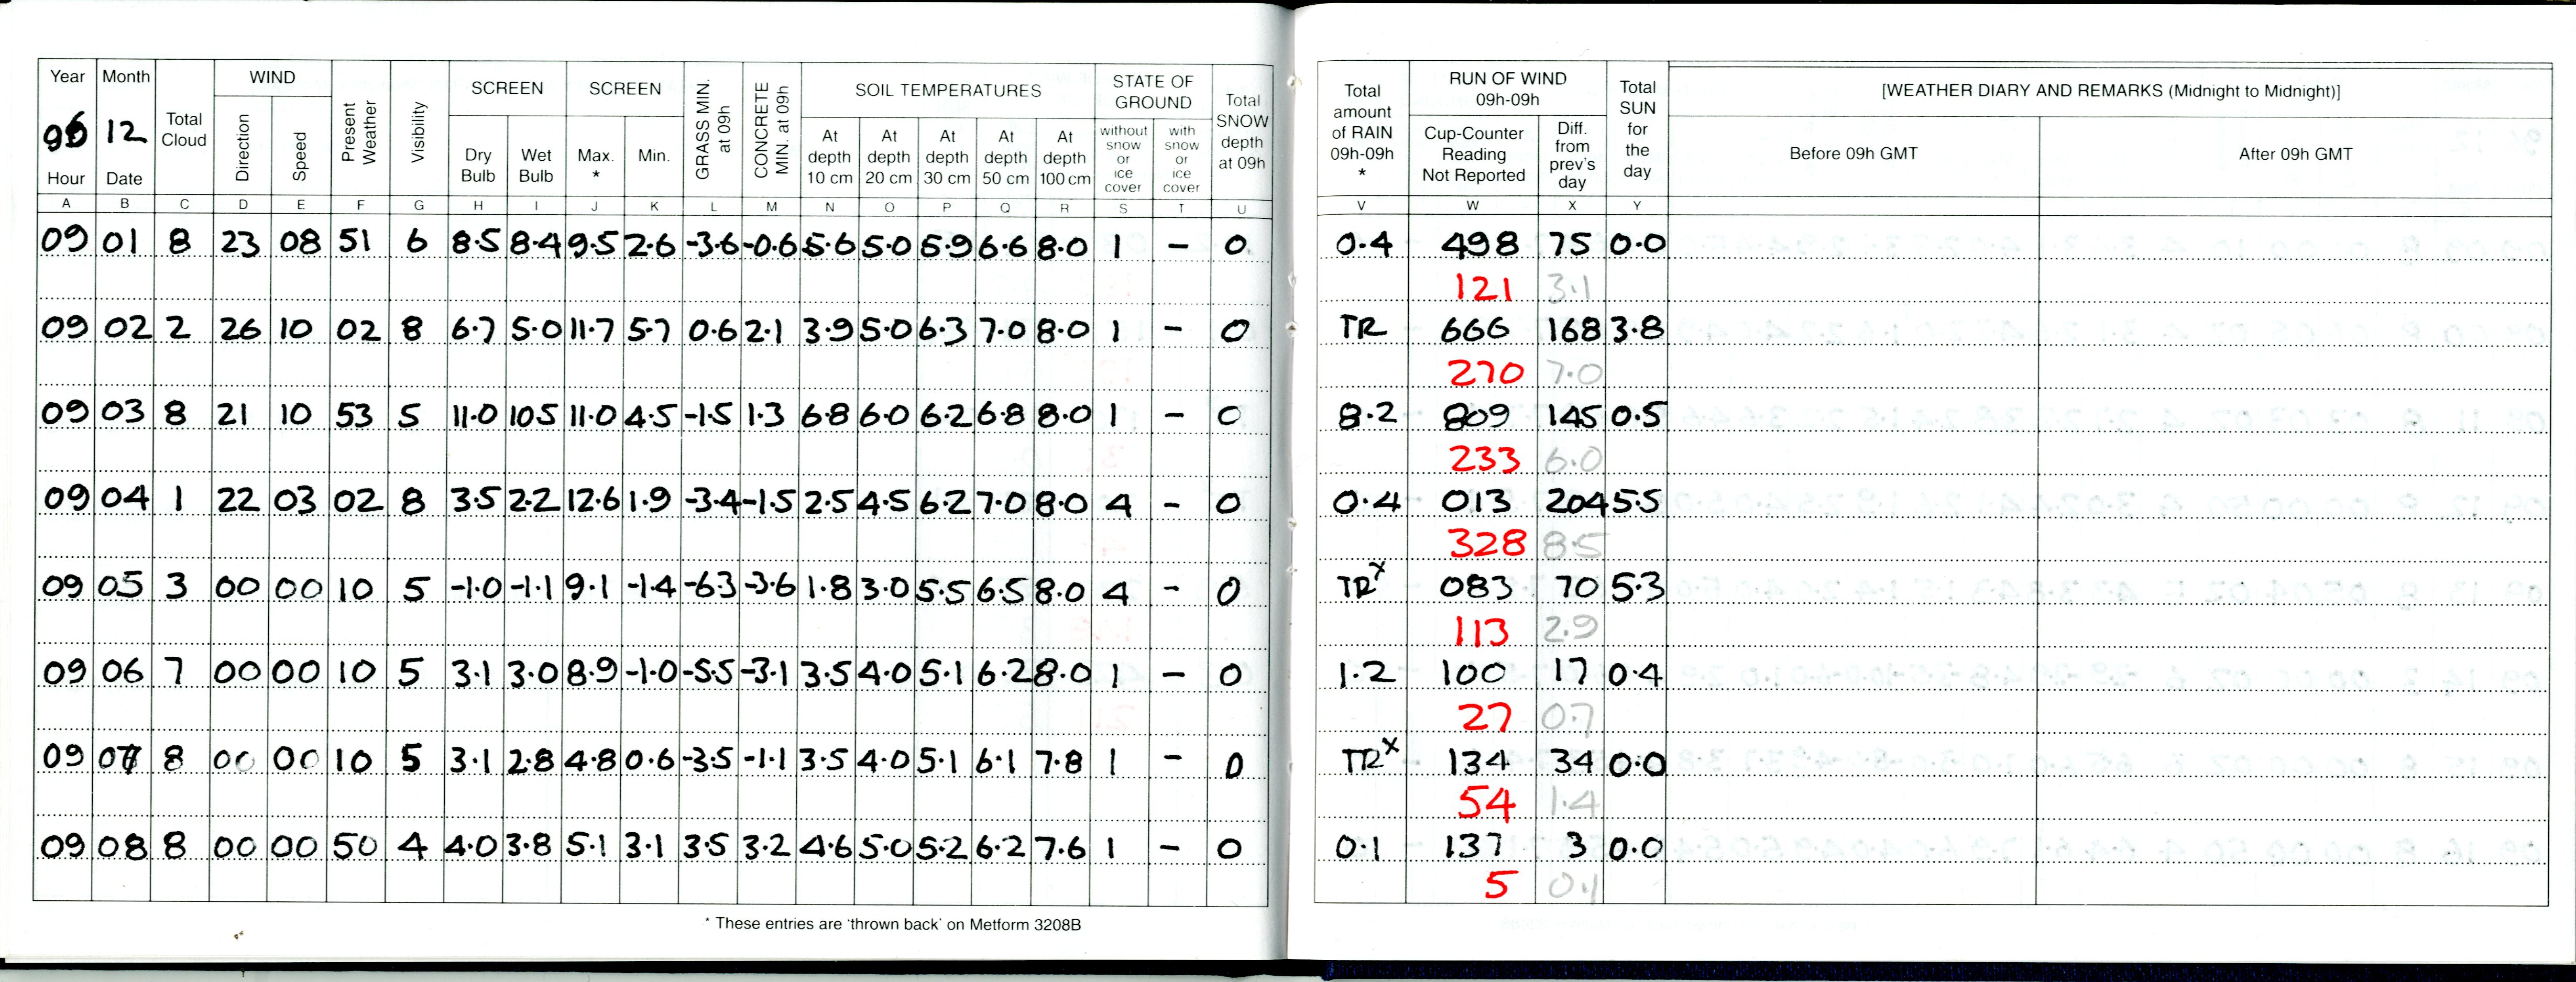 Year Month Total Cloud WIND Present Weather Visibility SCREEN SCREEN GRASS MIN. at 09h CONCRETE MIN. at 09h SOIL TEMPERATURES STATE OF GROUND Total SNOW depth at 09h
96 12 Direction Speed Dry Bulb Wet Bulb Max. * Min. At depth 10 cm At depth 20 cm At depth 30 cm At depth 50 cm At depth 100 cm without snow or ice cover with snow or ice cover
Hour Date
A B C D E F G H I J K L M N O P Q R S T U
09 01 8 23 08 51 6 8.5 8.4 9.5 2.6 -3.6 -0.6 5.6 5.0 5.9 6.6 8.0 1 – 0
09 02 2 26 10 02 8 6.7 5.0 11.7 5.7 0.6 2.1 3.9 5.0 6.3 7.0 8.0 1 – 0
09 03 8 21 10 53 5 11.0 105 11.0 4.5 -1.5 1.3 6.8 6.0 6.2 6.8 8.0 1 – 0
09 04 1 22 03 02 8 3.5 2.2 12.6 1.9 -3.4 -1.5 2.5 4.5 6.2 7.0 8.0 4 – 0
09 05 3 00 00 10 5 -1.0 -1.1 9.1 -1.4 -63 -3.6 1.8 3.0 5.5 6.5 8.0 4 – 0
09 06 7 00 00 10 5 3.1 3.0 8.9 -1.0 -5.5 -3.1 3.5 4.0 5.1 6.2 8.0 1 – 0
09 07 8 00 00 10 5 3.1 2.8 4.8 0.6 -3.5 -1.1 3.5 4.0 5.1 6.1 7.8 1 – 0
09 08 8 00 00 50 4 4.0 3.8 5.1 3.1 3.5 3.2 4.6 5.0 5.2 6.2 7.6 1 – 0
* These entries are 'thrown back' on Metform 3208B
Total amount of RAIN 09h-09h * RUN OF WIND 09h-09h Total SUN for the day [WEATHER DIARY AND REMARKS (Midnight to Midnight)]
Cup-Counter Reading Not Reported Diff. from prev's day Before 09h GMT After 09h GMT
V W X Y
0.4 498 75 0.0
121 3.1
TR 666 168 3.8
270 7.0
8.2 809 145 0.5
233 6.0
0.4 013 204 5.5
328 8.5
TRx 083 70 5.3
113 2.9
1.2 100 17 0.4
27 0.7
TRx 134 34 0.0
54 1.4
0.1 137 3 0.0
5 0.1